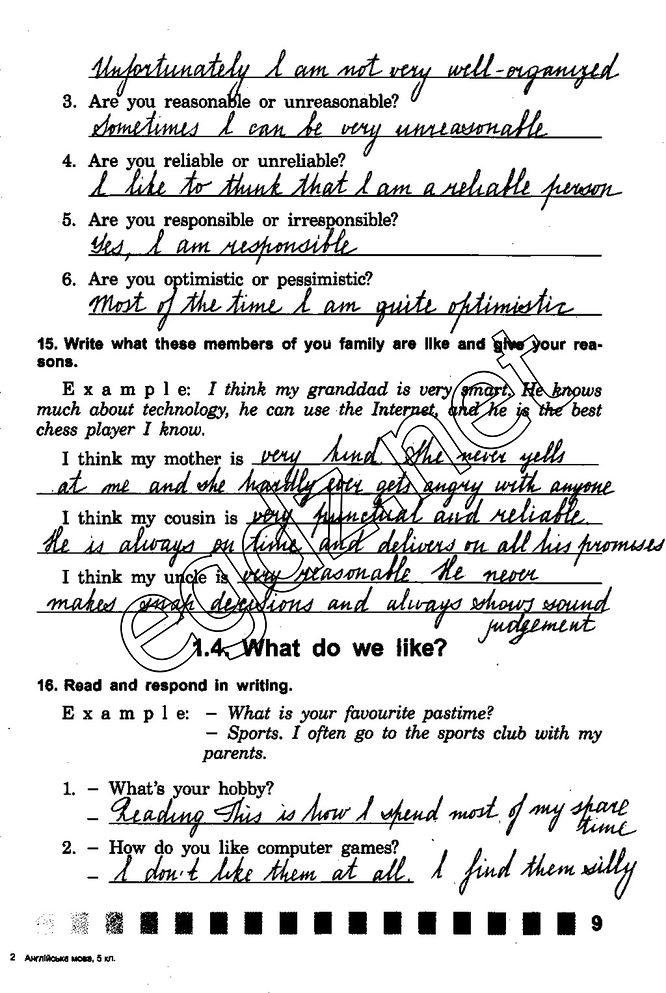 Unfortunately I am not very well-organized
3. Are you reasonable or unreasonable?
Sometimes I can be very unreasonable
4. Are you reliable or unreliable?
I like to think that I am a reliable person
5. Are you responsible or irresponsible?
Yes, I am responsible
6. Are you optimistic or pessimistic?
Most of the time I am quite optimistic
15. Write what these members of you family are like and give your rea-
sons.
E x a m p l e: I think my granddad is very smart. He knows
much about technology, he can use the Internet, and he is the best
chess player I know.
I think my mother is very kind. She never yells
at me and she hardly ever gets angry with anyone
I think my cousin is very punctual and reliable.
He is always on time and delivers on all his promises
I think my uncle is very reasonable He never
makes snap decisions and always shows sound
judgement
egdz.net
1.4. What do we like?
16. Read and respond in writing.
E x a m p l e: – What is your favourite pastime?
– Sports. I often go to the sports club with my
parents.
1. – What's your hobby?
– Reading This is how I spend most of my spare
time
2. – How do you like computer games?
– I don't like them at all. I find them silly
9
2 Англійська мова, 5 кл.